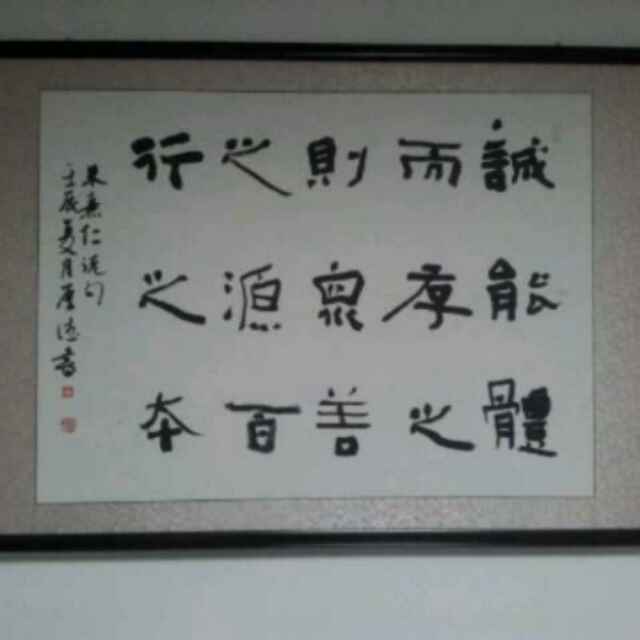 誠能體
而存之
則衆善
之源百
行之本
朱熹仁說句
壬辰夏月厚德書